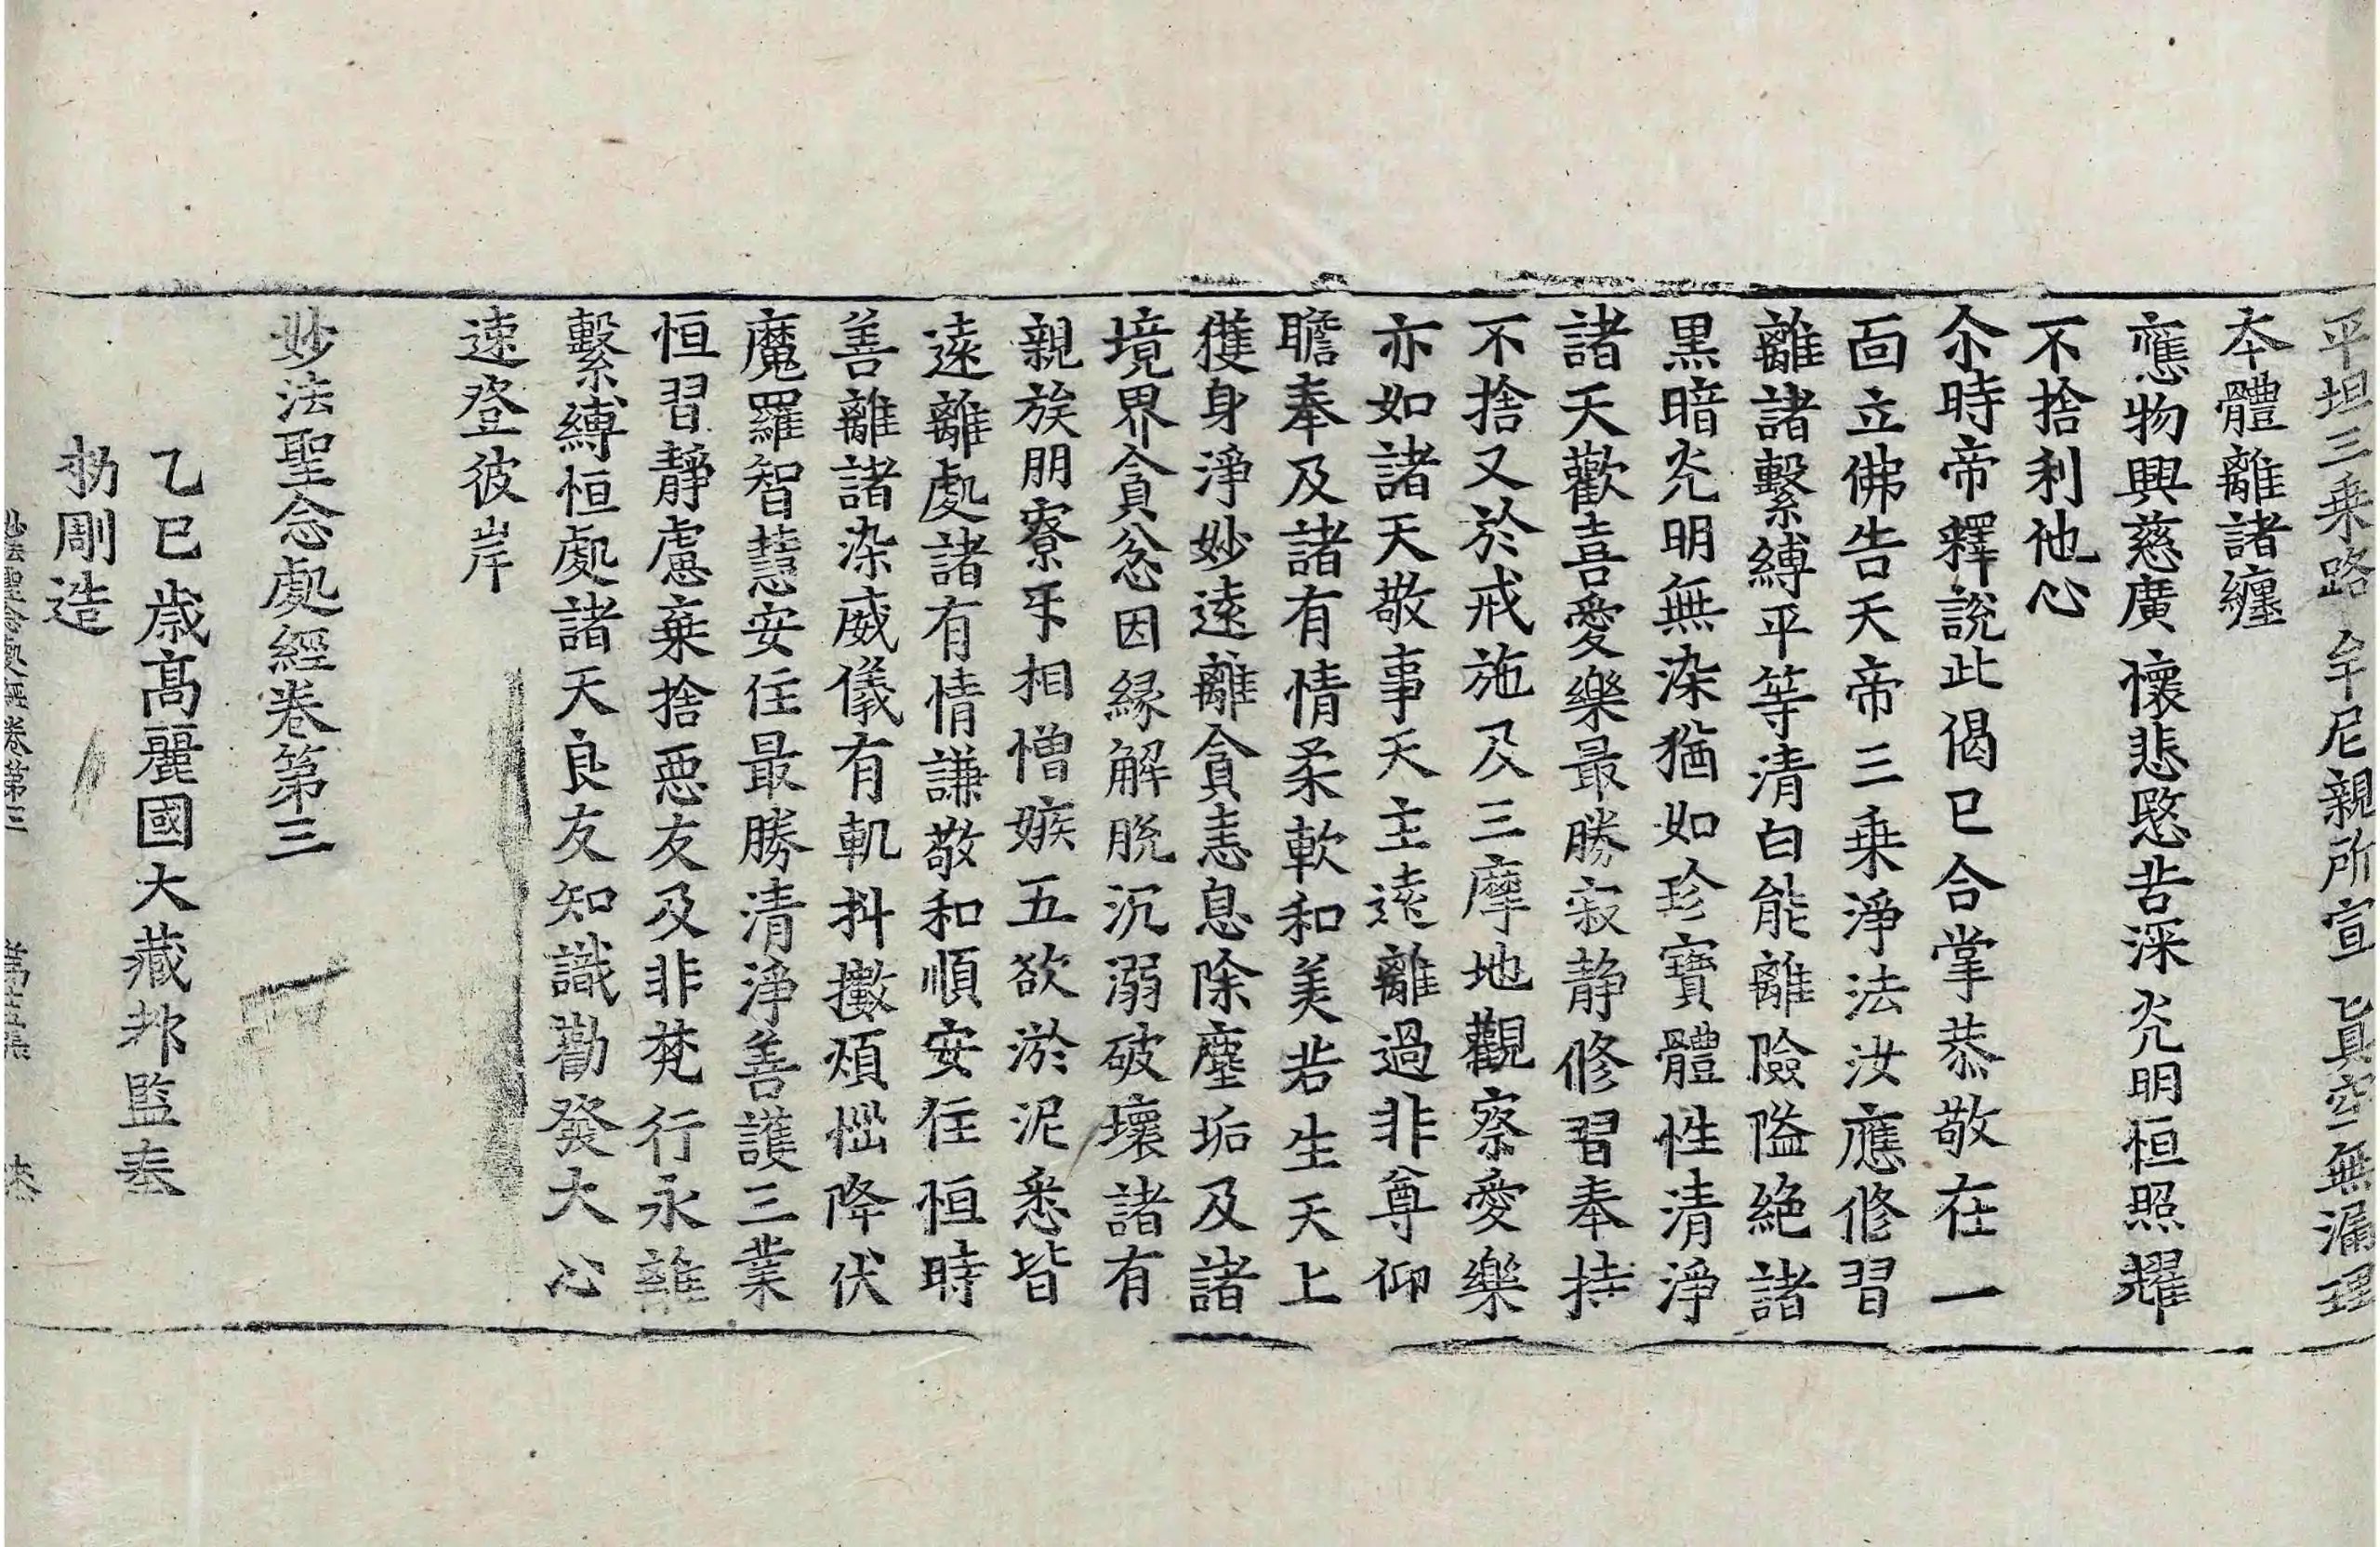 平坦三乘路 牟尼親所宣 眞空無漏理
本體離諸纏
應物興慈廣 懷悲愍苦深 光明恒照耀
不捨利他心
尒時帝釋說此偈已合掌恭敬在一
面立佛告天帝三乘淨法汝應修習
離諸繫縛平等清白能離險隘絕諸
黑暗光明無染猶如珍寶體性清淨
諸天歡喜愛樂最勝寂静修習奉持
不捨又於戒施及三摩地觀察愛樂
亦如諸天敬事天主遠離過非尊仰
瞻奉及諸有情柔軟和美若生天上
獲身淨妙遠離貪恚息除塵垢及諸
境界貪忿因縁解脫沉溺破壞諸有
親族朋寮互相憎嫉五欲淤泥悉皆
遠離處諸有情謙敬和順安住恒時
善離諸染威儀有軌抖擻煩惱降伏
魔羅智慧安住最勝清淨善護三業
恒習靜慮棄捨惡友及非梵行永離
繫縛恒處諸天良友知識勸發大心
速登彼岸
妙法聖念處經卷第三
乙巳歲高麗國大藏都監奉
勅彫造
妙法聖念處經卷第三 第十五張